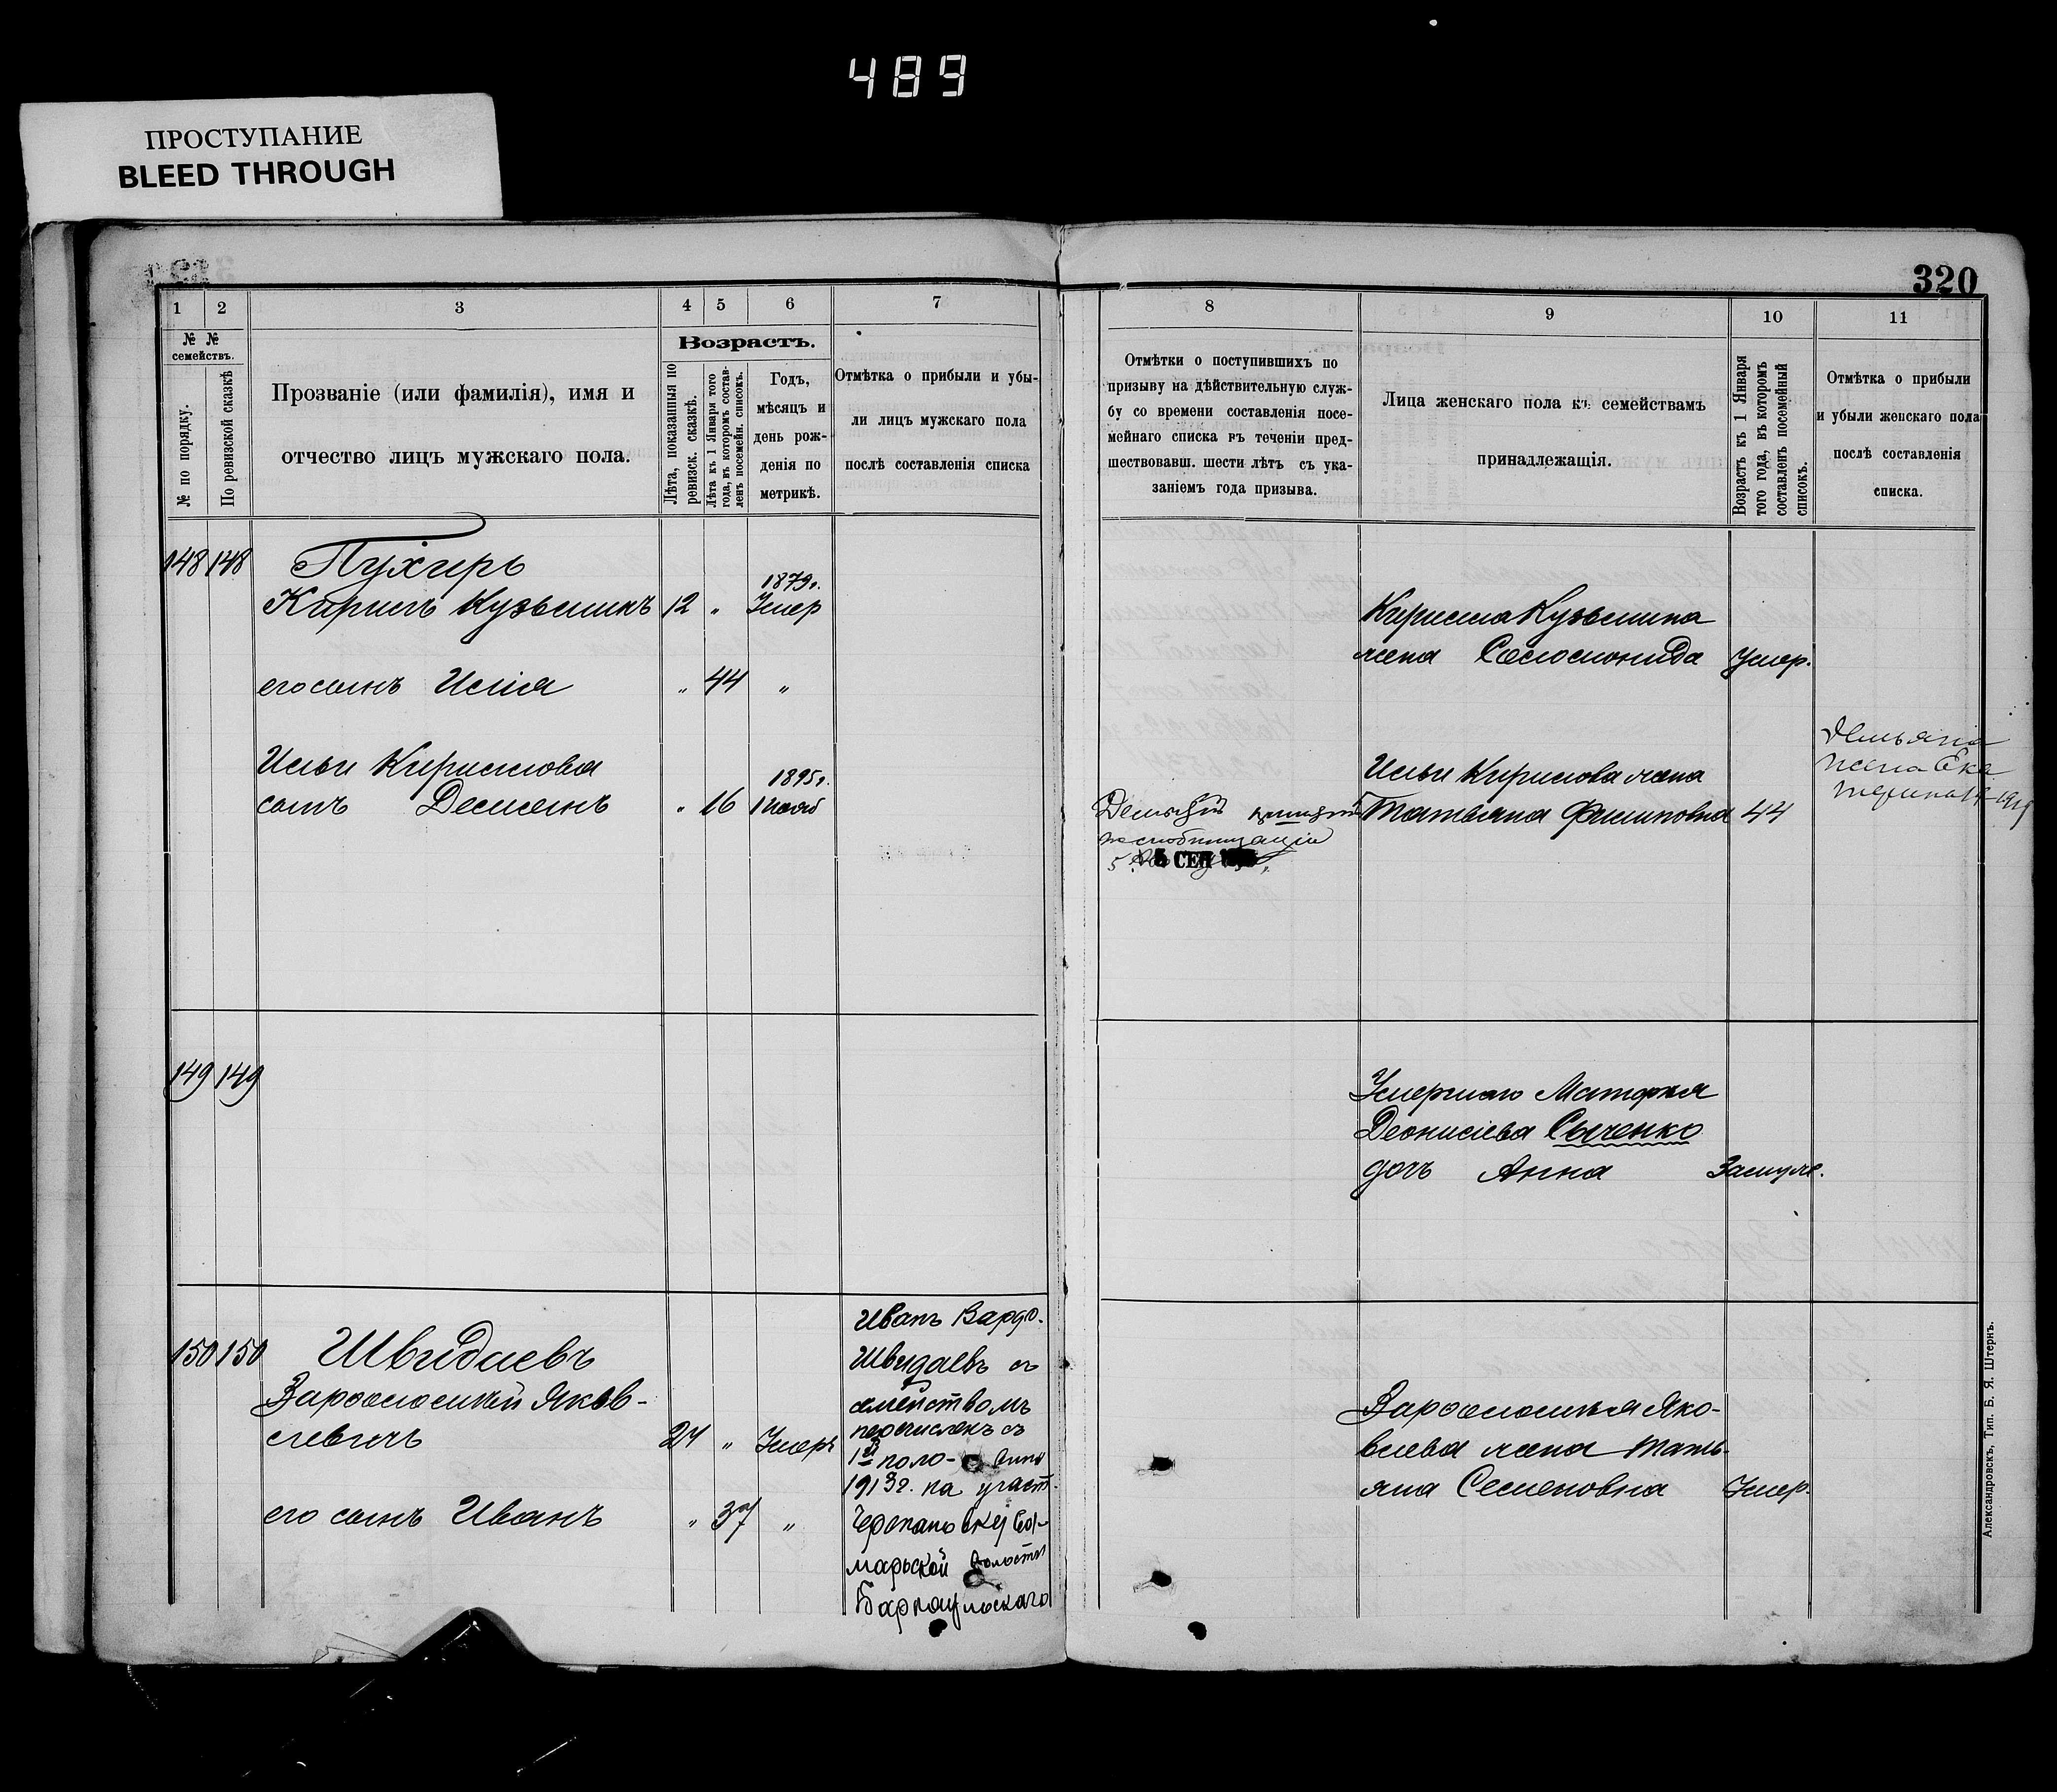 489
ПРОСТУПАНИЕ
BLEED THROUGH
320
1 2 3 4 5 6 7
№ № семействъ.
№ по порядку.
По ревизской сказкѣ
Прозваніе (или фамилія), имя и
отчество лицъ мужскаго пола.
Возрастъ.
Лѣта, показанныя по
ревизск. сказкѣ.
Лѣта къ 1 Января того
года, въ которомъ состав-
ленъ посемейн. списокъ.
Годъ,
мѣсяцъ и
день рож-
денія по
метрикѣ.
Отмѣтка о прибыли и убы-
ли лицъ мужскаго пола
послѣ составленія списка
8 9 10 11
Отмѣтки о поступившихъ по
призыву на дѣйствительную служ-
бу со времени составленія посе-
мейнаго списка въ теченіи пред-
шествовавш. шести лѣтъ съ ука-
заніемъ года призыва.
Лица женскаго пола къ семействамъ
принадлежащія.
Возрастъ къ 1 Января
того года, въ которомъ
составленъ посемейный
списокъ.
Отмѣтка о прибыли
и убыли женскаго пола
послѣ составленія
списка.
148 148 Пухирь
1879г.
Кирилъ Кузьминъ 12 " Умер
его сынъ Илія " 44 "
Ильи Кирилова
1895г.
сынъ Демьянъ " 16 1 Нояб
5 СЕН
Кирилла Кузьмина
жена Соломонида Умер.
Ильи Кирилова жена
Татьяна Филиповна 44
Демьяна
жена Ека
терина 19 1919
149 149
Умершаго Матфея
Деонисіева Сыченко
дочь Анна Замуж.
150 150 Швидаевъ
Варфоломей Яков-
левичъ 24 " Умеръ
его сынъ Иванъ " 37 "
Иванъ Варфо.
Швидаевъ съ
семействомъ
перечисленъ съ
1й поло-
1913г. на участ.
марьской волости
Барнаульскаго
Варфоломея Яко-
влева жена Тать-
яна Семеновна Умер.
Александровскъ, Тип. Б. Я. Штернъ.